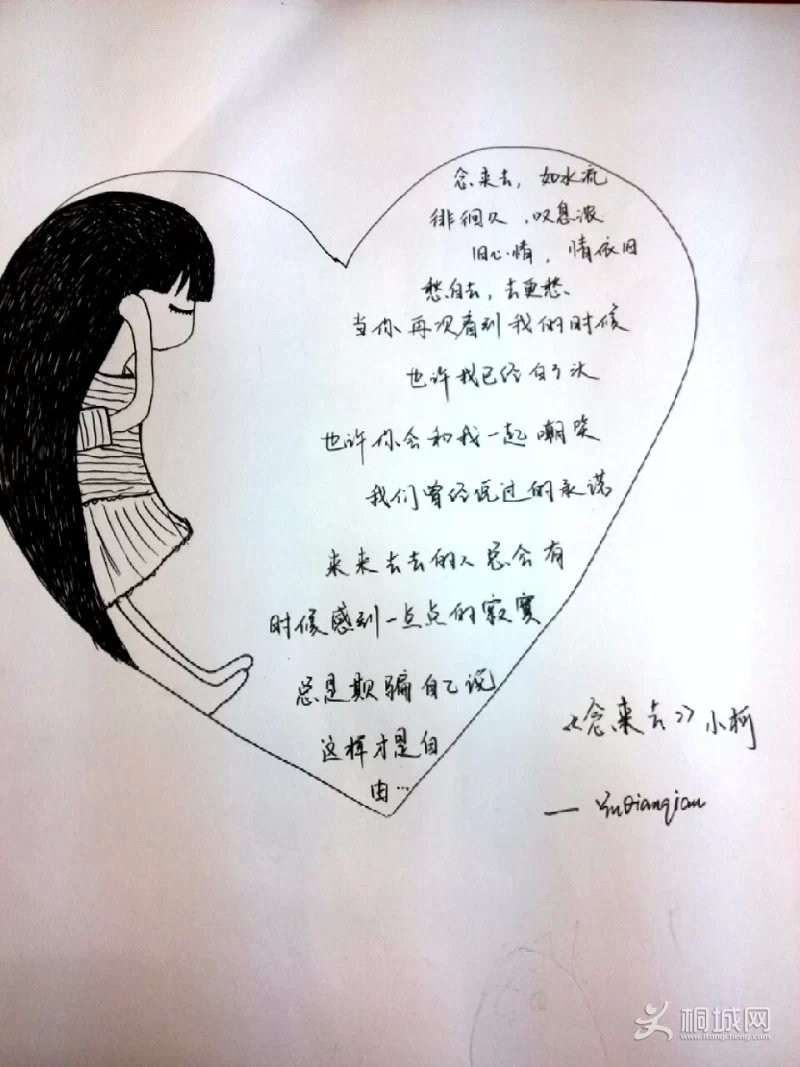 念来去，如水流
徘徊久，叹息浓
旧心情，情依旧
愁自去，去更愁、
当你再次看到我的时候
也许我已经白了头
也许你会和我一起嘲笑
我们曾经说过的永诺
来来去去的人总会有
时候感到一点点的寂寞
总是欺骗自己说
这样才是自
由…
《念来去》小柯
— YuQianqian
桐城网
www.itongcheng.com